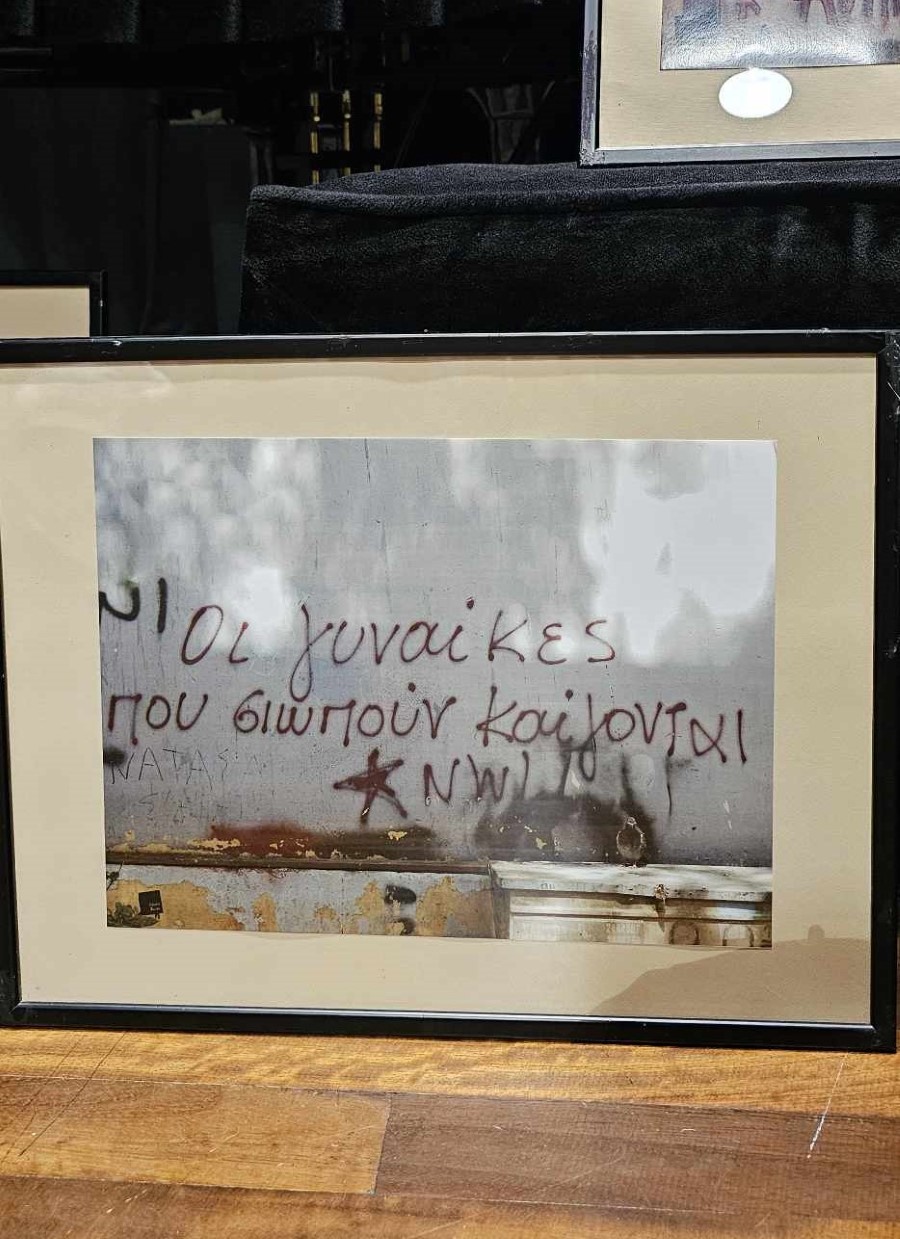 Οι γυναίκες
που σιωπούν καίγονται
NWI
ΝΑΤΑΣ